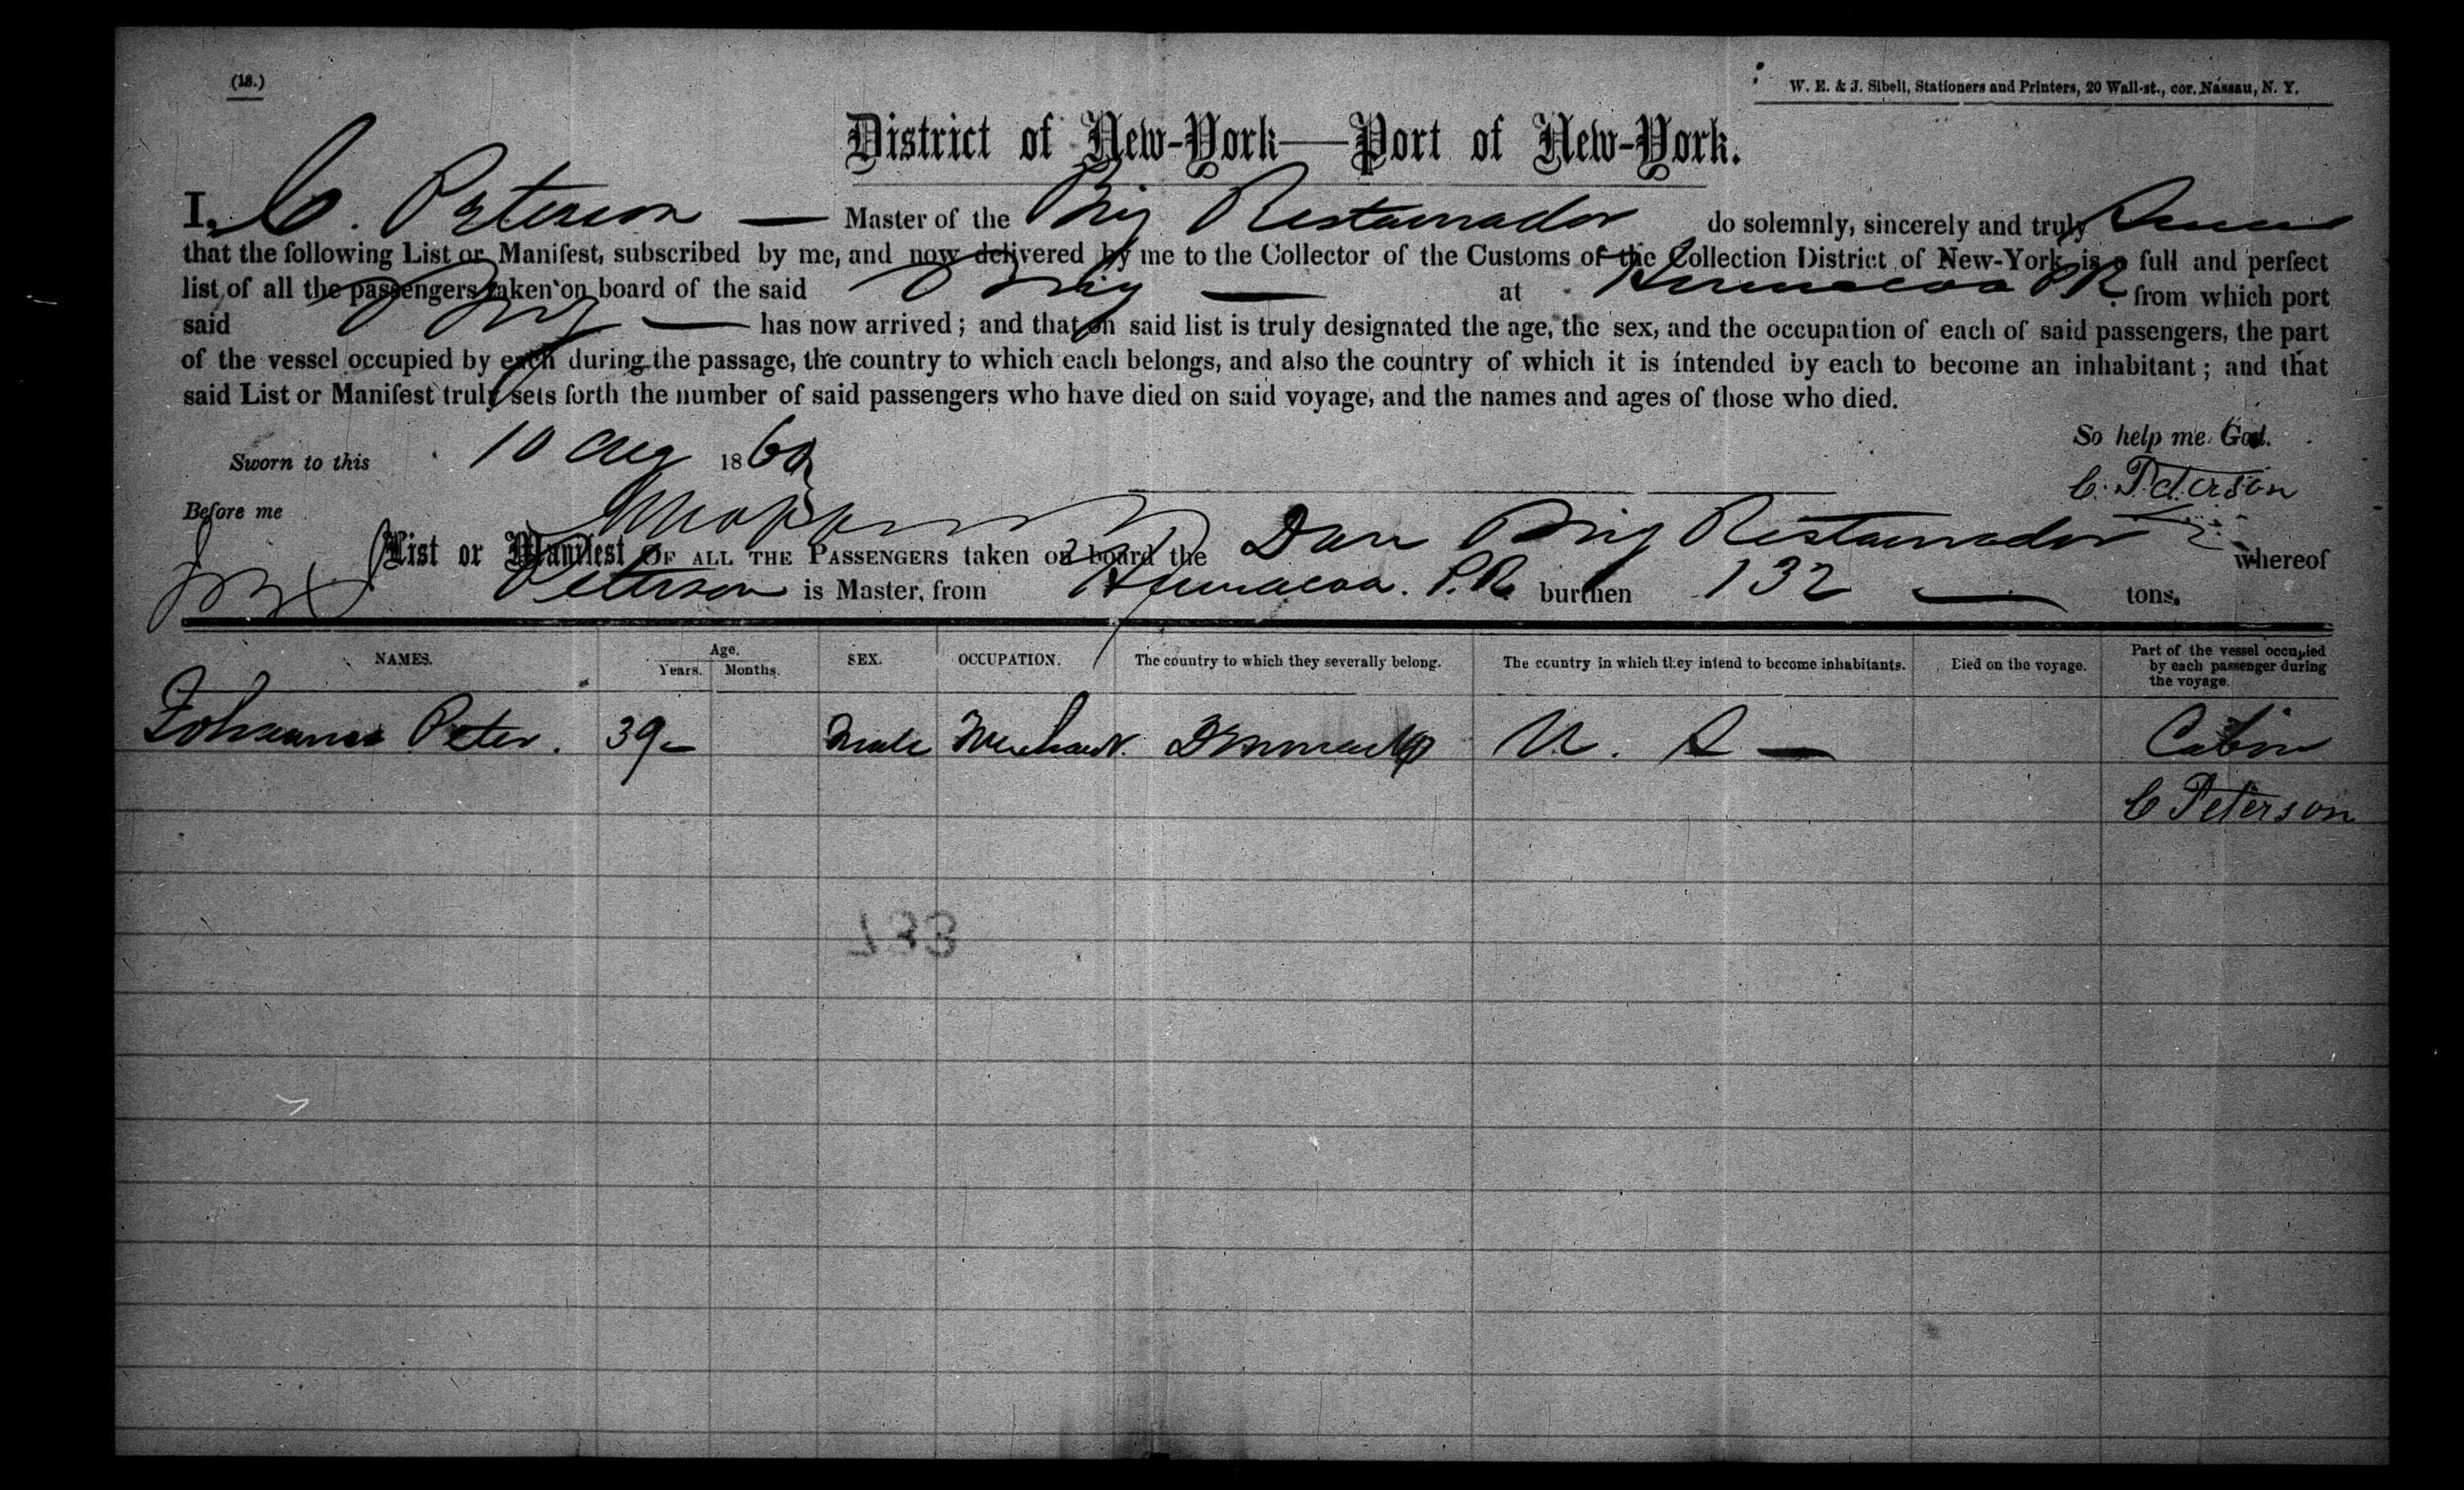 (18.)
W. E. & J. Sibell, Stationers and Printers, 20 Wall-st., cor. Nassau, N. Y.
District of New-York—Port of New-York.
I, C. Peterson — Master of the Brig Restaurador do solemnly, sincerely and truly Swear
that the following List or Manifest, subscribed by me, and now delivered by me to the Collector of the Customs of the Collection District of New-York, is a full and perfect
list of all the passengers taken on board of the said Brig — at Humacoa PR from which port
said Brig — has now arrived; and that on said list is truly designated the age, the sex, and the occupation of each of said passengers, the part
of the vessel occupied by each during the passage, the country to which each belongs, and also the country of which it is intended by each to become an inhabitant; and that
said List or Manifest truly sets forth the number of said passengers who have died on said voyage, and the names and ages of those who died.
So help me God.
Sworn to this 10 Aug 1860
C. Peterson
Before me
List or Manifest OF ALL THE PASSENGERS taken on board the Dan Brig Restaurador whereof
Peterson is Master, from Humacoa. P.R. burthen 132 — tons.
NAMES. Age. Years. Months. SEX. OCCUPATION. The country to which they severally belong. The country in which they intend to become inhabitants. Died on the voyage. Part of the vessel occupied by each passenger during the voyage.
Johannes Peter. 39 Male Merchant. Denmark U. S — Cabin
C Peterson
733